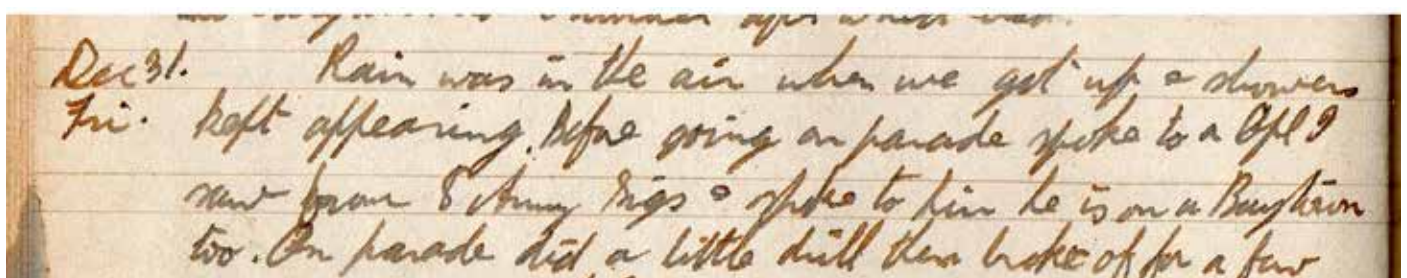 Dec 31. Rain was in the air when we got up & showers
Fri. kept appearing. Before going on parade spoke to a Cpl I
saw from 8 Army Sigs & spoke to him he is on a
too. On parade did a little drill then broke of for a few